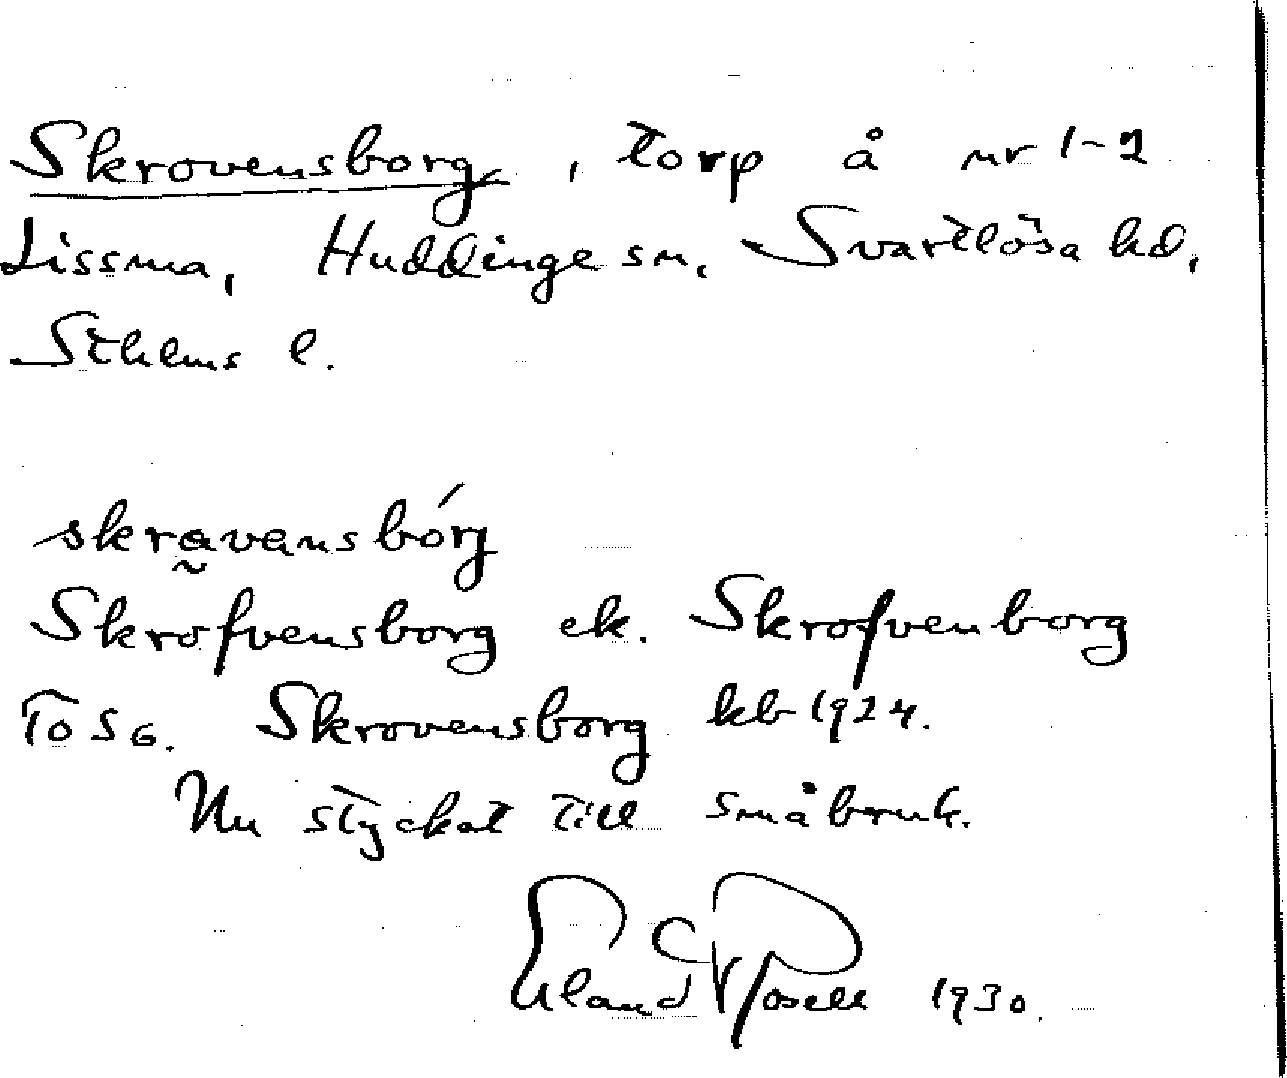 Skrovensborg, torp å nr 1-2
Lissma, Huddinge sn, Svartlösa hd,
Sthlms l.
skravansbórj
Skrofvensborg ek. Skrofvenborg
Tö SG. Skrovensborg kb 1924.
Nu styckat till småbruk.
Erland Rosell 1930.